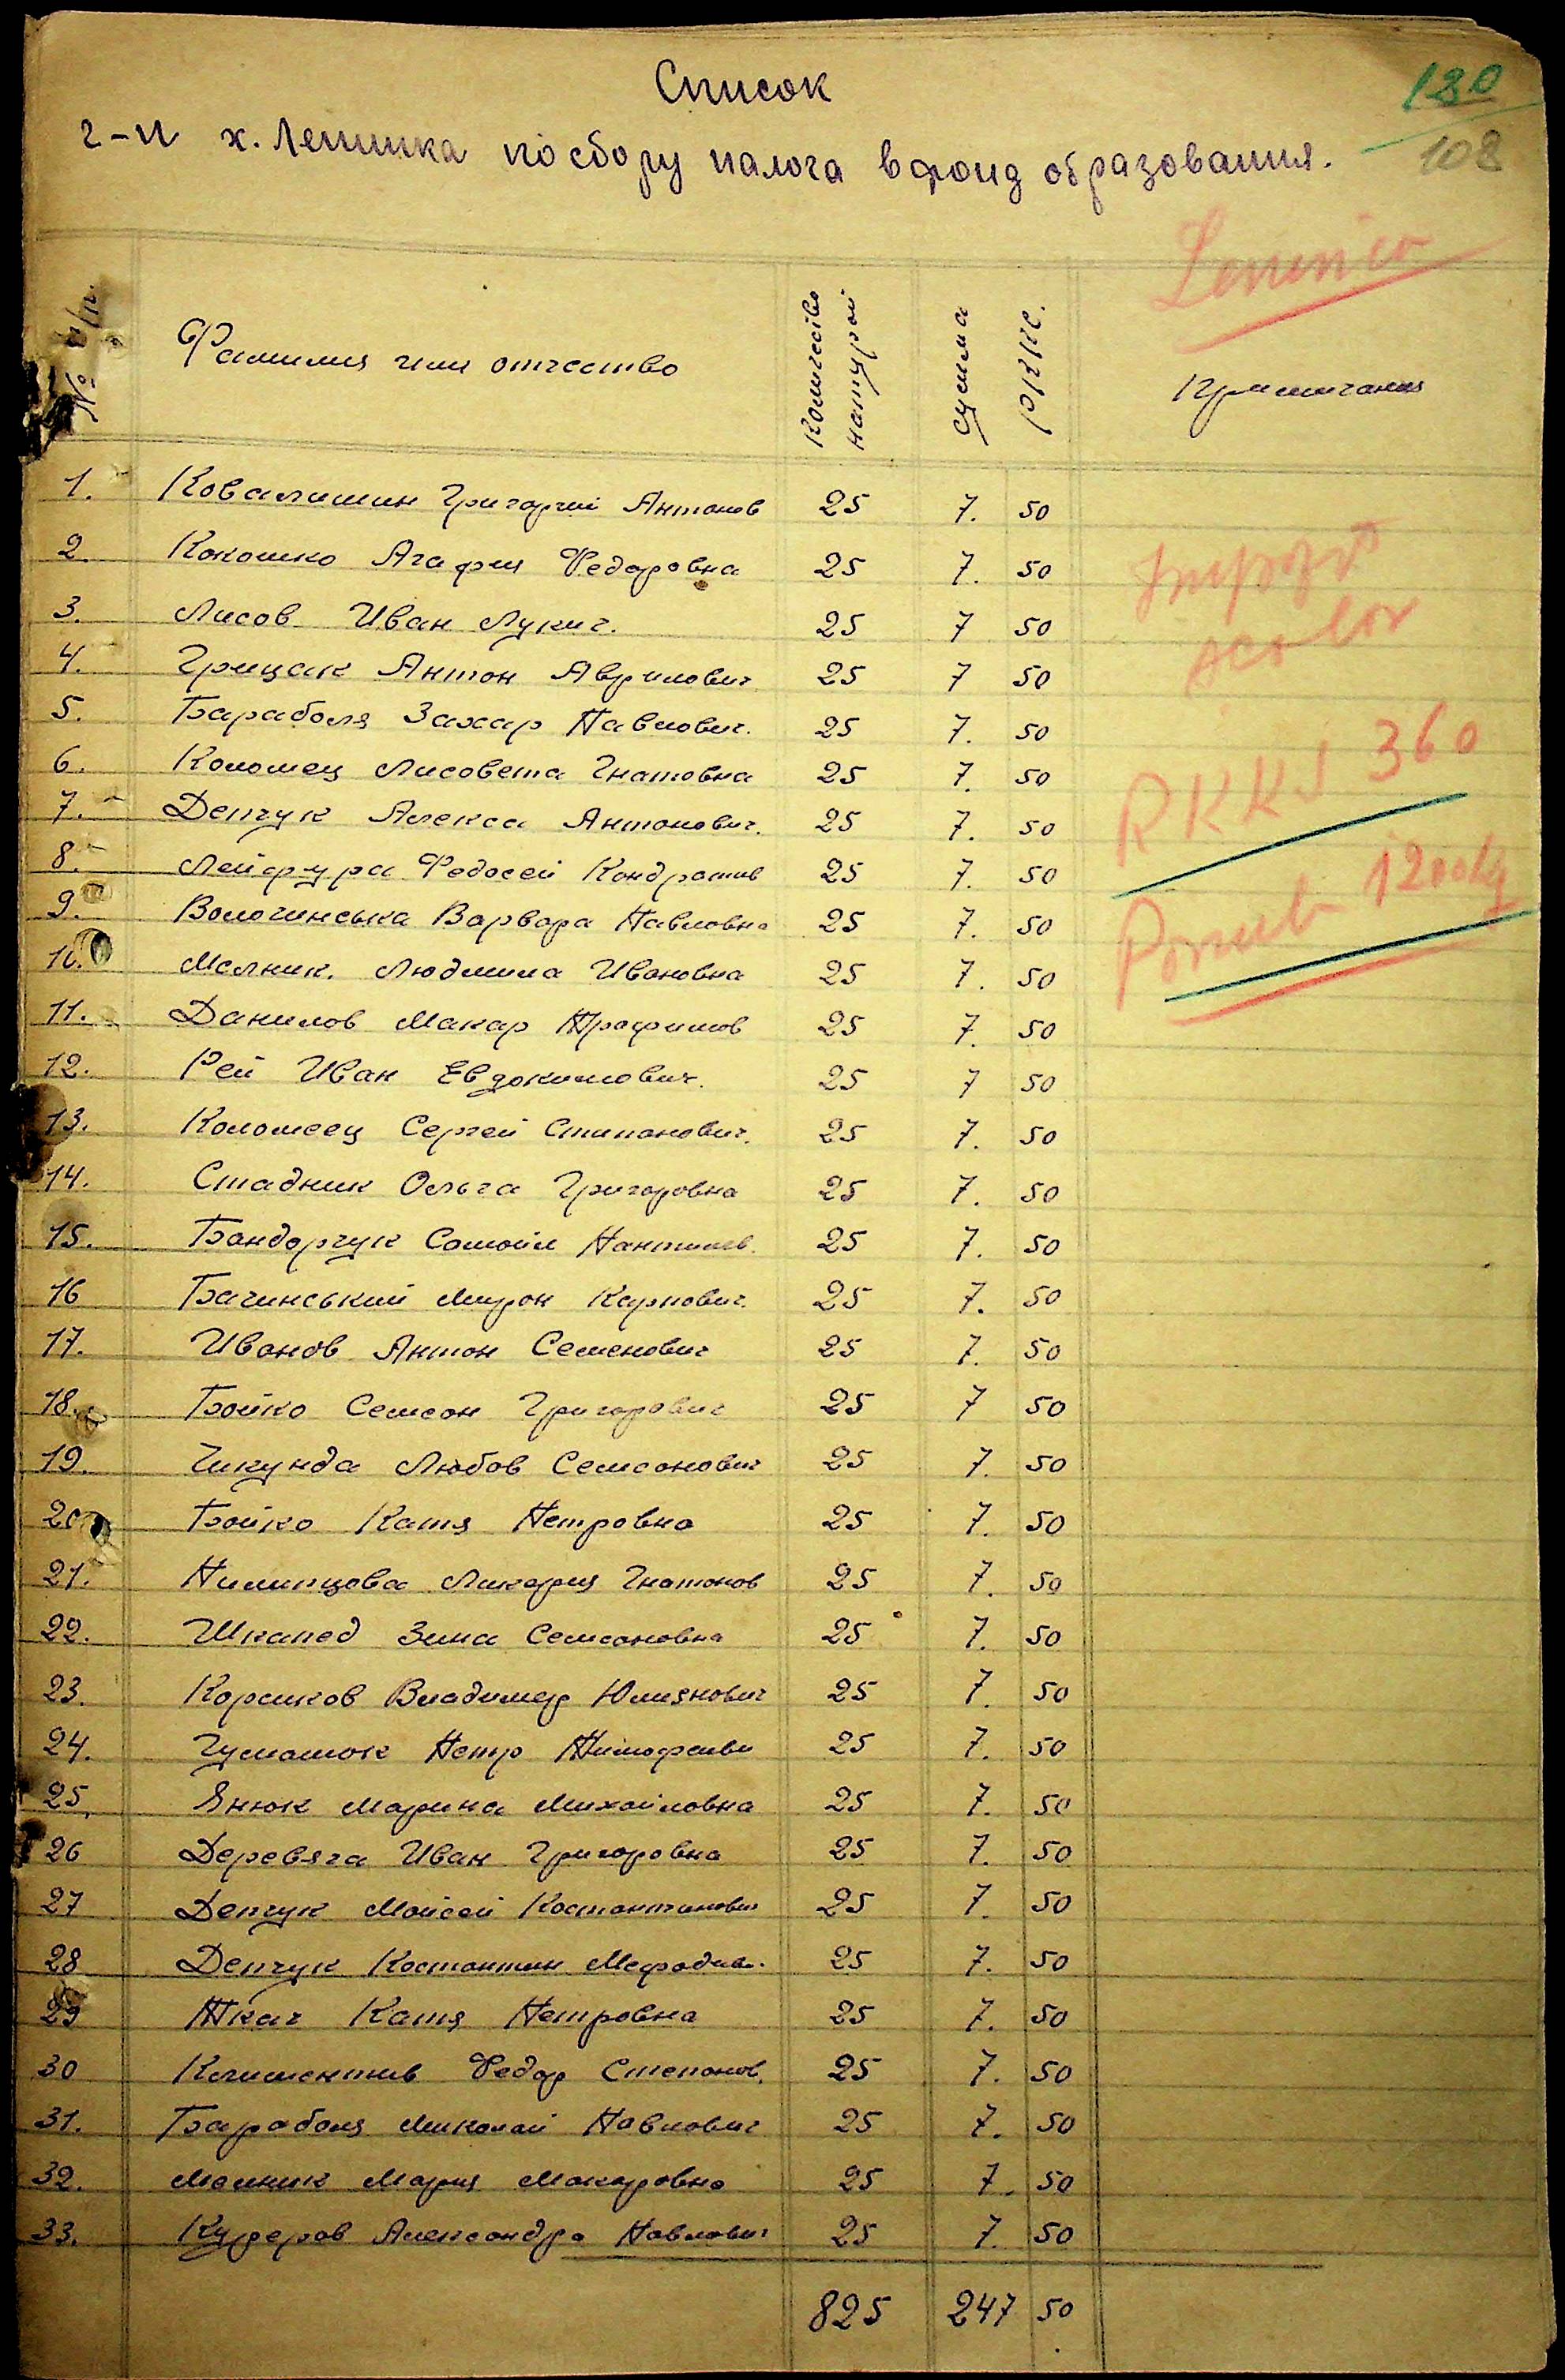 Список
г-н х. Ленинка по сбору налога в фонд образования.
180
108
Leninca
№ п/п.
Фамилия имя отчество
Количество натурой
сумма
РККС.
Примичания
1. Ковалишин Григорий Антонов 25 7. 50
2. Кокошко Агафия Федоровна 25 7. 50
3. Лисов Иван Лукич. 25 7 50
4. Грищак Антон Аврилович 25 7 50
5. Бараболя Захар Павлович. 25 7. 50
6. Коломец Лисовета Гнатовна 25 7. 50
7. Депчук Алекса Антонович. 25 7. 50
8. Лейфура Федосей Кондратив 25 7. 50
9. Вологинська Варвара Павловна 25 7. 50
10. Мелник. Людмила Ивановна 25 7. 50
11. Данилов Макар Трофимов 25 7. 50
12. Рей Иван Евдокимович. 25 7 50
13. Коломеец Сергей Стипанович. 25 7. 50
14. Стадник Ольга Григоровна 25 7. 50
15. Бандарчук Самойл Пантилев. 25 7. 50
16 Бачинський Мирон Карпович. 25 7. 50
17. Иванов Антон Семенович 25 7. 50
18. Бойко Семсон Григорович 25 7 50
19. Чикунда Любов Семсонович 25 7. 50
20 Бойко Катя Петровна 25 7. 50
21. Пилипцова Ликария Гнатонов 25 7. 50
22. Шкапед Зина Семсоновна 25 7. 50
23. Корсиков Владимер Юлиянович 25 7. 50
24. Гуманюк Петр Тимофеиви 25 7. 50
25. Янюк Марина Михайловна 25 7. 50
26 Деревяга Иван Григоровна 25 7. 50
27 Депчук Мойсей Костантинович 25 7. 50
28 Депчук Костантин Мефодив. 25 7. 50
29 Ткач Катя Петровна 25 7. 50
30 Климентив Федор Степанов. 25 7. 50
31. Бараболя Миколай Павлович 25 7. 50
32. Мелник Мария Макаровна 25 7. 50
33. Кучеров Александра Павлович 25 7. 50
825 247 50
Impozit
scolar
RKKS 360
Porumb 1200 kg